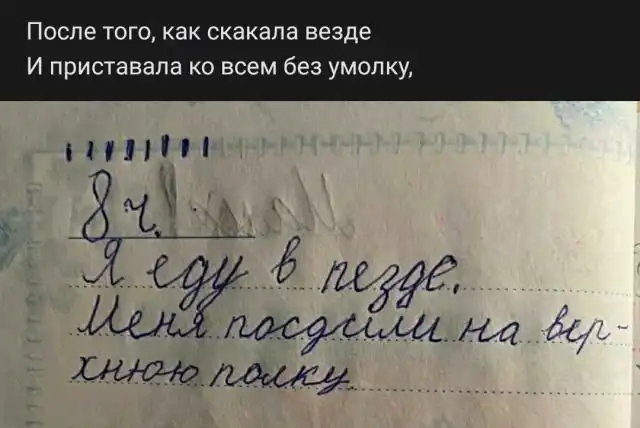 После того, как скакала везде
И приставала ко всем без умолку,
8 ч.
Я еду в пезде.
Меня посдили на вер-
хнюю полку